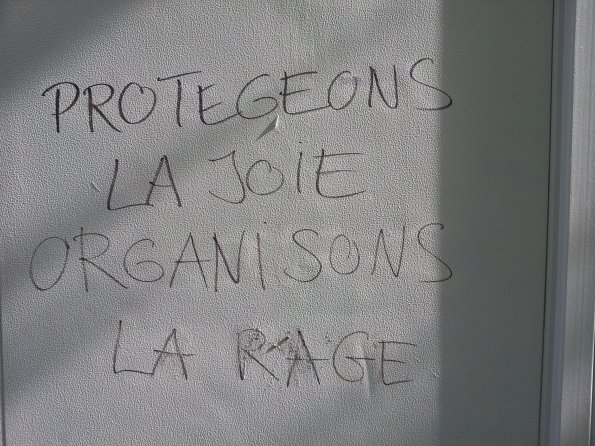 PROTEGEONS
LA JOIE
ORGANISONS
LA RAGE